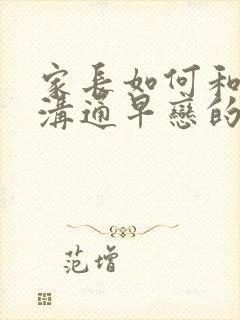 家長如何和
溝通早戀的
范增